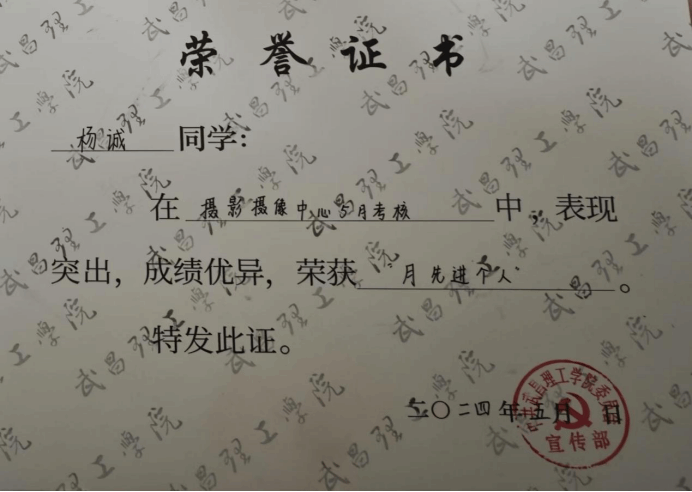 荣誉证书
杨诚同学:
在摄影摄像中心5月考核中，表现
突出，成绩优异，荣获“月先进个人”。
特发此证。
二〇二四年五月 日
中共武昌理工学院委员会
宣传部
武昌理工学院